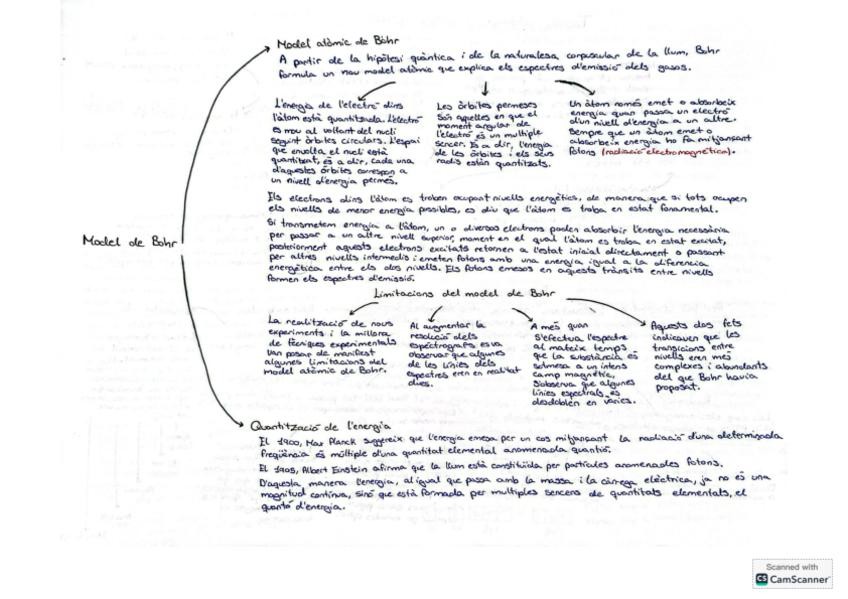 Model atòmic de Bohr
A partir de la hipòtesi quàntica i de la naturalesa corpuscular de la llum, Bohr
formula un nou model atòmic que explica els espectres d'emissió dels gasos.
L'energia de l'electró dins
l'àtom està quantitzada. L'electró
es mou al voltant del nucli
seguint òrbites circulars. L'espai
que envolta el nucli està
quantitzat, és a dir, cada una
d'aquestes òrbites correspon a
un nivell d'energia permès.
Les òrbites permeses
són aquelles en que el
moment angular de
l'electró és un múltiple
sencer. És a dir, l'energia
de les òrbites i els seus
radis estàn quantitzats.
Un àtom només emet o absorbeix
energia quan passa un electró
d'un nivell d'energia a un altre.
Sempre que un àtom emet o
absorbeix energia ho fa mitjançant
fotons (radiació electromagnètica).
Els electrons dins l'àtom es troben ocupant nivells energètics, de manera que si tots ocupen
els nivells de menor energia possibles, es diu que l'àtom es troba en estat fonamental.
Si transmetem energia a l'àtom, un o diversos electrons poden absorbir l'energia necessària
per passar a un altre nivell superior, moment en el qual l'àtom es troba en estat excitat,
posteriorment aquests electrons excitats retornen a l'estat inicial directament o passant
per altres nivells intermedis i emeten fotons amb una energia igual a la diferència
energètica entre els dos nivells. Els fotons emesos en aquests trànsits entre nivells
formen els espectres d'emissió.
Model de Bohr
Limitacions del model de Bohr
La realització de nous
experiments i la millora
de tècniques experimentals
van posar de manifest
algunes limitacions del
model atòmic de Bohr.
Al augmentar la
resolució dels
espectrògrafs es va
observar que algunes
de les línies dels
espectres eren en realitat
dues.
A més quan
s'efectua l'espectre
al mateix temps
que la substància és
sotmesa a un intens
camp magnètic,
s'observa que algunes
línies espectrals es
desdoblen en vàries.
Aquests dos fets
indicaven que les
transicions entre
nivells eren més
complexes i abundants
del que Bohr havia
proposat.
Quantització de l'energia
El 1900, Max Planck suggereix que l'energia emesa per un cos mitjançant la radiació d'una determinada
freqüència és múltiple d'una quantitat elemental anomenada quàntic.
El 1905, Albert Einstein afirma que la llum està constituïda per partícules anomenades fotons.
D'aquesta manera l'energia, al igual que passa amb la massa i la càrrega elèctrica, ja no és una
magnitud contínua, sinó que està formada per multiples sencers de quantitats elementals, el
quantó d'energia.
Scanned with
CS CamScanner